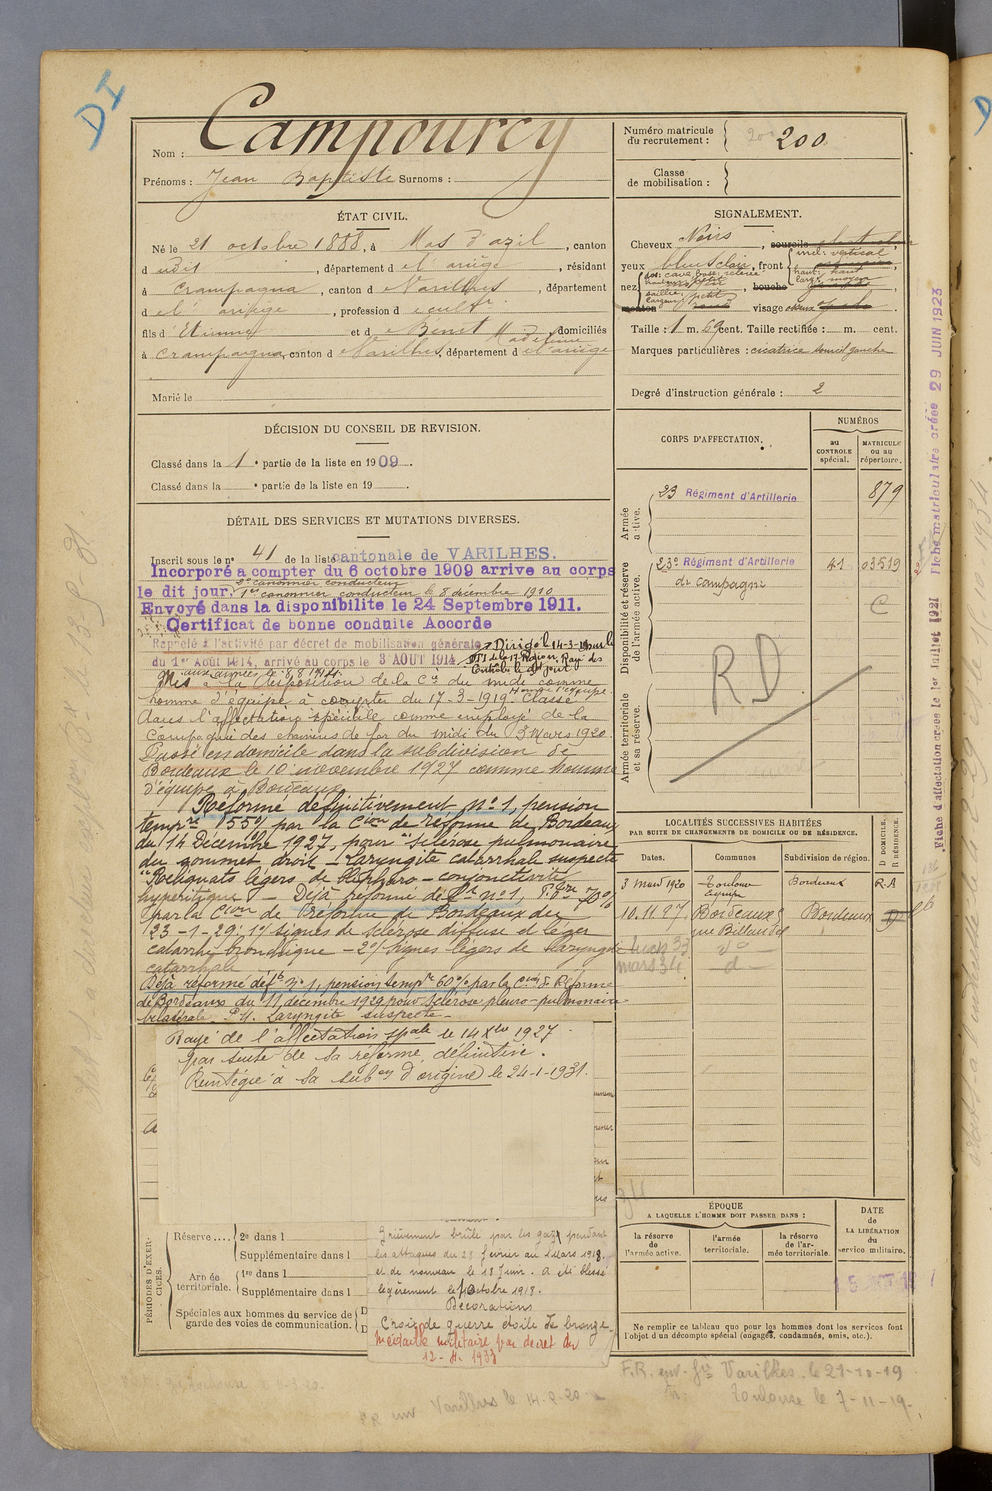 DI
Nom : Campourcy
Prénoms : Jean Baptiste Surnoms :
Numéro matricule du recrutement : 200
Classe de mobilisation :
ÉTAT CIVIL.
Né le 21 octobre 1888, à Mas d'azil, canton
d udit, département d e l'ariège, résidant
à Crampagna, canton d e Varilhes, département
d e l'ariège, profession d e cultr
fils d'Etienne et d e Benet Madeleine domiciliés
à Crampagna, canton d e Varilhes, département d e l'ariège
Marié le
SIGNALEMENT.
Cheveux Noirs, sourcils
yeux bleus clair, front incl: vertical
haut: haut
larg: moyen
nez dos: cave, base: relevée
saillie: petit
largeur: petit
bouche
menton visage osseux
Taille : 1 m. 69 cent. Taille rectifiée : m. cent.
Marques particulières : cicatrice sourcil gauche
Degré d'instruction générale : 2
DÉCISION DU CONSEIL DE REVISION.
Classé dans la 1e partie de la liste en 1909.
Classé dans la e partie de la liste en 19
DÉTAIL DES SERVICES ET MUTATIONS DIVERSES.
Inscrit sous le n° 41 de la liste cantonale de VARILHES.
Incorporé a compter du 6 octobre 1909 arrive au corps
2e canonnier conducteur
le dit jour. 1er canonnier conducteur le 8 décembre 1910
Envoyé dans la disponibilite le 24 Septembre 1911.
Certificat de bonne conduite Accorde
Rappelé à l'activité par décret de mobilisation générale
du 1er Août 1914, arrivé au corps le 3 AOUT 1914.
aux armées le 8 8 1914
Dirigé le 14-3-19 sur le
DTI de la 17e Région. Rayé des
Contrôles le dit jour
Mis à la disposition de la Cie du midi comme
homme d'équipe à compter du 17-3-1919 Classé
homme d'équipe
dans l'affectation spéciale comme employé de la
Compagnie des chemins de fer du midi du 3 Mars 1920.
Passé en domicile dans la subdivision de
Bordeaux le 10 novembre 1927 comme homme
d'équipe à Bordeaux
Réformé définitivement n° 1, pension
tempre 55% par la Cion de réforme de Bordeaux
du 14 Décembre 1927, pour "sclérose pulmonaire
du sommet droit - Laryngite catarrhale suspecte
"Reliquats légers de blépharo-conjonctivite
- Déjà réformé déft n° 1, P. 70%
par la Cion de Réforme de Bordeaux du
23-1-29: 1°/ signes de sclérose diffuse et léger
catarrhe bronchique - 2°/ Signes légers de laryngite
catarrhale
Déjà réformé déft n° 1, pension tempre 60% par la Cion de Réforme
de Bordeaux du 11 décembre 1929 pour sclérose pleuro-pulmonaire
bilatérale. Laryngite suspecte -
Rayé de l'affectation spale le 14 Xbre 1927
par suite de sa réforme définitive.
Réintégré à sa subon d'origine le 24-1-1931.
PÉRIODES D'EXERCICES.
Réserve.... 2e dans l
Supplémentaire dans l
Armée territoriale. 1re dans l
Supplémentaire dans l
Spéciales aux hommes du service de garde des voies de communication.
Grièvement brûlé par les gaz pendant
les attaques du 28 février au 1 Mars 1918.
et de nouveau le 18 Juin. A été blessé
légèrement le octobre 1918.
Décorations
Croix de guerre étoile de bronze.
Médaille militaire par décret du
12-4.1933
CORPS D'AFFECTATION.
NUMÉROS
au CONTROLE spécial.
MATRICULE ou au répertoire.
Armée active.
23 Régiment d'Artillerie 879
Disponibilité et réserve de l'armée active.
23e Régiment d'Artillerie 41 03519
de campagne
C
Armée territoriale et sa réserve.
RD
LOCALITÉS SUCCESSIVES HABITÉES
PAR SUITE DE CHANGEMENTS DE DOMICILE OU DE RÉSIDENCE.
Dates. Communes Subdivision de région. D DOMICILE. R RÉSIDENCE.
3 Mars 1920 Toulouse Bordeaux R-A
10.11.27. Bordeaux Bordeaux D
mars 33 do
mars 34 -d-
ÉPOQUE
A LAQUELLE L'HOMME DOIT PASSER DANS :
la réserve de l'armée active.
l'armée territoriale.
la réserve de l'armée territoriale.
DATE de LA LIBÉRATION du service militaire.
Ne remplir ce tableau que pour les hommes dont les services font
l'objet d'un décompte spécial (engagés, condamnés, omis, etc.).
Fiche d'affectation créée le 1er Juillet 1921
Fiche matriculaire créée 29 JUIN 1923
F.R. env. Gie Varilhes. le 21-10-19
Toulouse le 7-11-19.
FR env Varilhes le 14-2-20